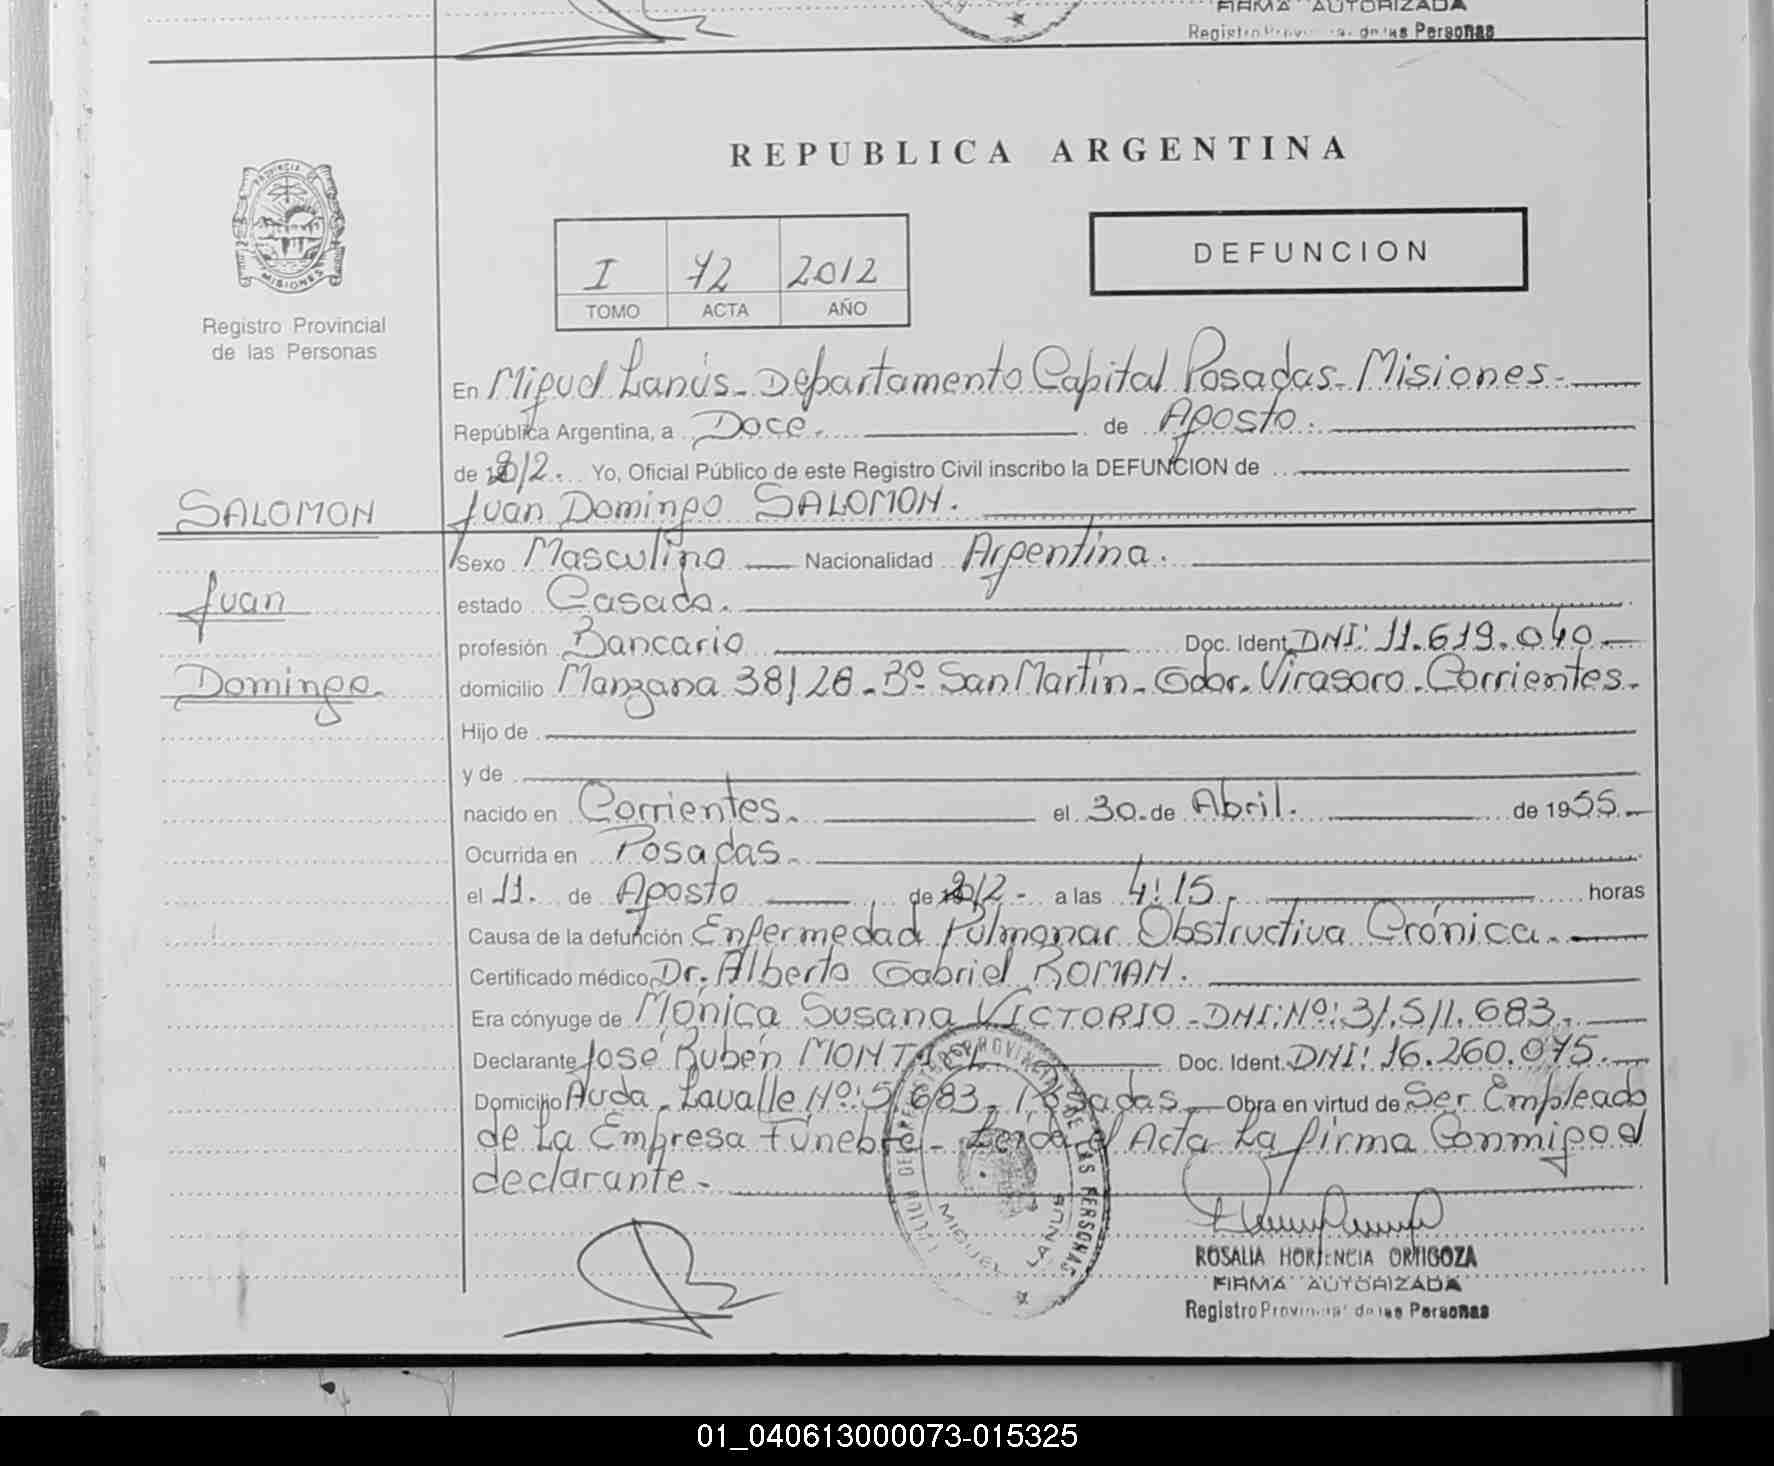 FIRMA AUTORIZADA
Registro de las Personas
REPUBLICA ARGENTINA
PROVINCIA DE
MISIONES
Registro Provincial
de las Personas
I 72 2012
TOMO ACTA AÑO
DEFUNCION
En Miguel Lanús - Departamento Capital Posadas - Misiones -
República Argentina, a Doce. de Agosto.
de 2012. Yo, Oficial Público de este Registro Civil inscribo la DEFUNCION de
SALOMON
Juan Domingo SALOMON.
Juan
Domingo
Sexo Masculino Nacionalidad Argentina.
estado Casado.
profesión Bancario Doc. Ident. DNI: 11.619.040 -
domicilio Manzana 38/28 - Bº San Martín - Gdor. Virasoro - Corrientes.
Hijo de
y de
nacido en Corrientes. el 30 de Abril. de 1955. -
Ocurrida en Posadas.
el 11. de Agosto de 2012 - a las 4:15. horas
Causa de la defunción Enfermedad Pulmonar Obstructiva Crónica.
Certificado médico Dr. Alberto Gabriel ROMAN.
Era cónyuge de Mónica Susana VICTORIO - DNI: Nº: 31.511.683.
Declarante José Rubén Doc. Ident. DNI: 16.260.075.
Domicilio Avda. Lavalle Nº: 5683 - Posadas - Obra en virtud de Ser Empleado
de la Empresa Fúnebre - Leída el Acta la firma Conmigo el
declarante -
PROVINCIAL DE LAS PERSONAS
MIGUEL LANUS
ROSALIA HORTENCIA ORTIGOZA
FIRMA AUTORIZADA
Registro Provincial de las Personas
01_040613000073-015325